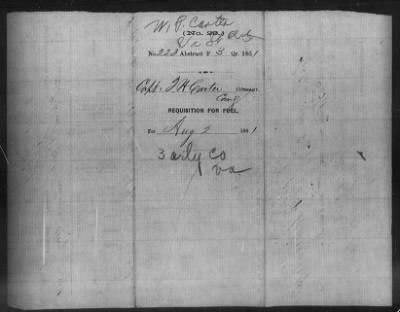 W. P. Carter
(No. 29.)
No. 222 Abstract F 3 Qr. 1861
Capt. T H Carter COMMAND'
Comg
REQUISITION FOR FUEL.
For Aug 2 1861
3 arty Co
Va